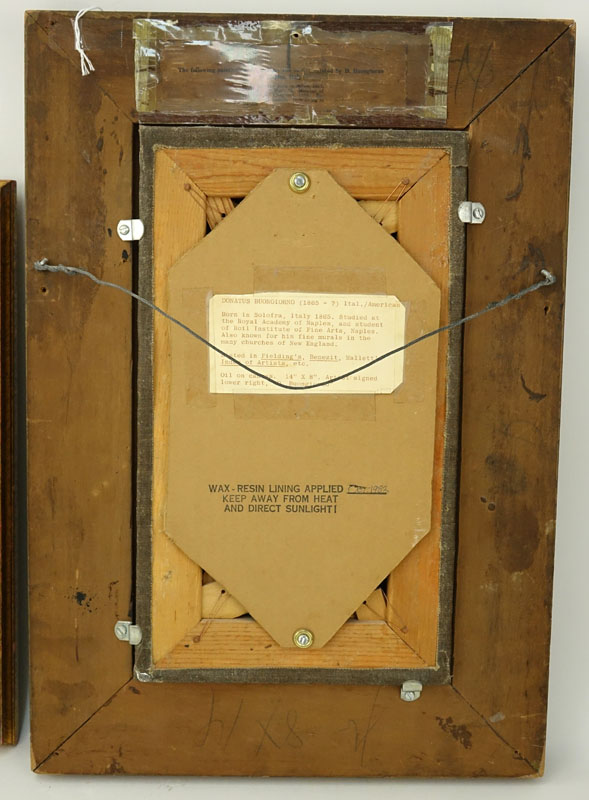 The following
by D. Buongiorno
DONATUS BUONGIORNO (1865 - ?) Ital./American
Born in Solofra, Italy 1865. Studied at
the Royal Academy of Naples, and student
of Roil Institute of Fine Arts, Naples.
Also known for his fine murals in the
many churches of New England.
Listed in Fielding's, Benezit, Mallett's
Index of Artists, etc.
Oil on 14" X 8". Artist signed
lower right,
WAX-RESIN LINING APPLIED 1982
KEEP AWAY FROM HEAT
AND DIRECT SUNLIGHT!
8 X 14